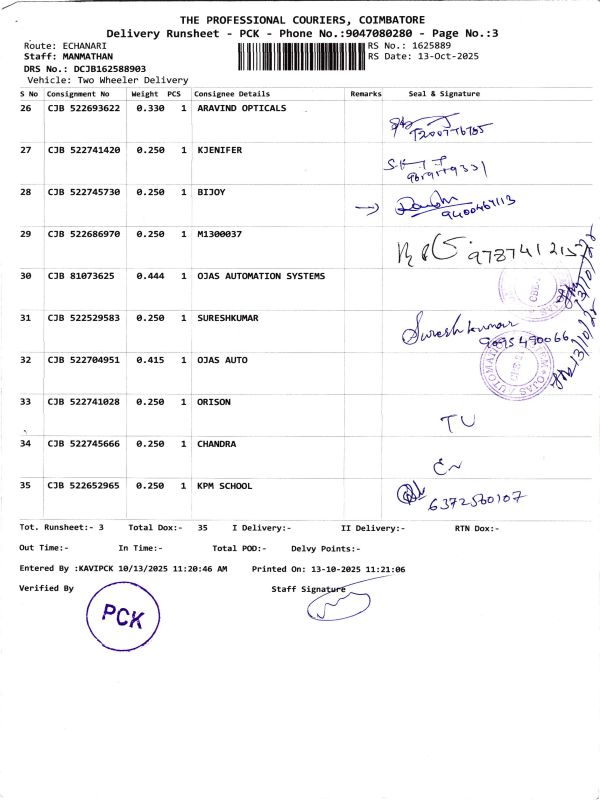 THE PROFESSIONAL COURIERS, COIMBATORE
Delivery Runsheet - PCK - Phone No.:9047080280 - Page No.:3
Route: ECHANARI RS No.: 1625889
Staff: MANMATHAN RS Date: 13-Oct-2025
DRS No.: DCJB162588903
Vehicle: Two Wheeler Delivery
S No Consignment No Weight PCS Consignee Details Remarks Seal & Signature
26 CJB 522693622 0.330 1 ARAVIND OPTICALS
27 CJB 522741420 0.250 1 KJENIFER
28 CJB 522745730 0.250 1 BIJOY
9400467113
29 CJB 522686970 0.250 1 M1300037
9787412157
30 CJB 81073625 0.444 1 OJAS AUTOMATION SYSTEMS
31 CJB 522529583 0.250 1 SURESHKUMAR
Suresh kumar
9095490066
32 CJB 522704951 0.415 1 OJAS AUTO
13/10/25
33 CJB 522741028 0.250 1 ORISON
34 CJB 522745666 0.250 1 CHANDRA
35 CJB 522652965 0.250 1 KPM SCHOOL
6372560107
Tot. Runsheet:- 3 Total Dox:- 35 I Delivery:- II Delivery:- RTN Dox:-
Out Time:- In Time:- Total POD:- Delvy Points:-
Entered By :KAVIPCK 10/13/2025 11:20:46 AM Printed On: 13-10-2025 11:21:06
Verified By Staff Signature
PCK